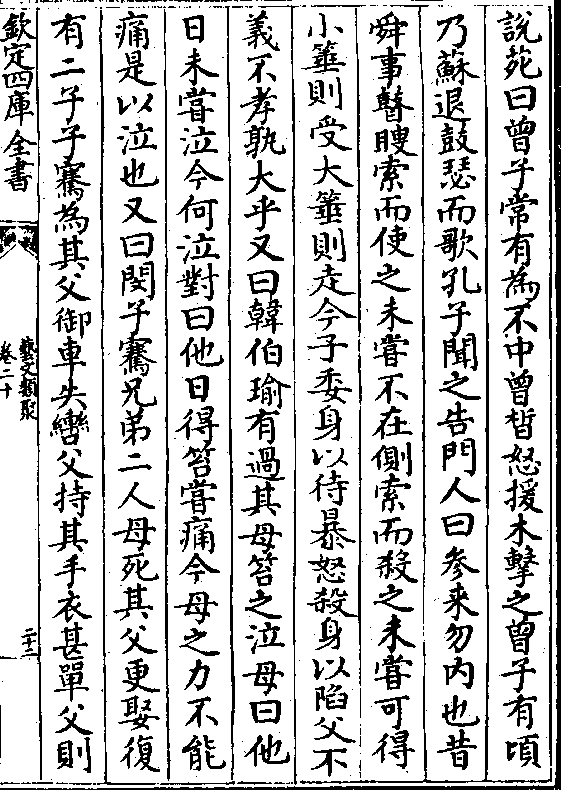 說苑曰曾子常有為不中曾晳怒援木擊之曾子有頃
乃蘇退鼓瑟而歌孔子聞之告門人曰參来勿内也昔
舜事瞽瞍索而使之未嘗不在側索而殺之未嘗可得
小箠則受大箠則走今子委身以待暴怒殺身以陷父不
義不孝孰大乎又曰韓伯瑜有過其母笞之泣母曰他
日未嘗泣今何泣對曰他日得笞嘗痛今母之力不能
痛是以泣也又曰閔子騫兄弟二人母死其父更娶復
有二子子騫為其父御車失轡父持其手衣甚單父則
欽定四庫全書
藝文類聚
卷二十
二十二